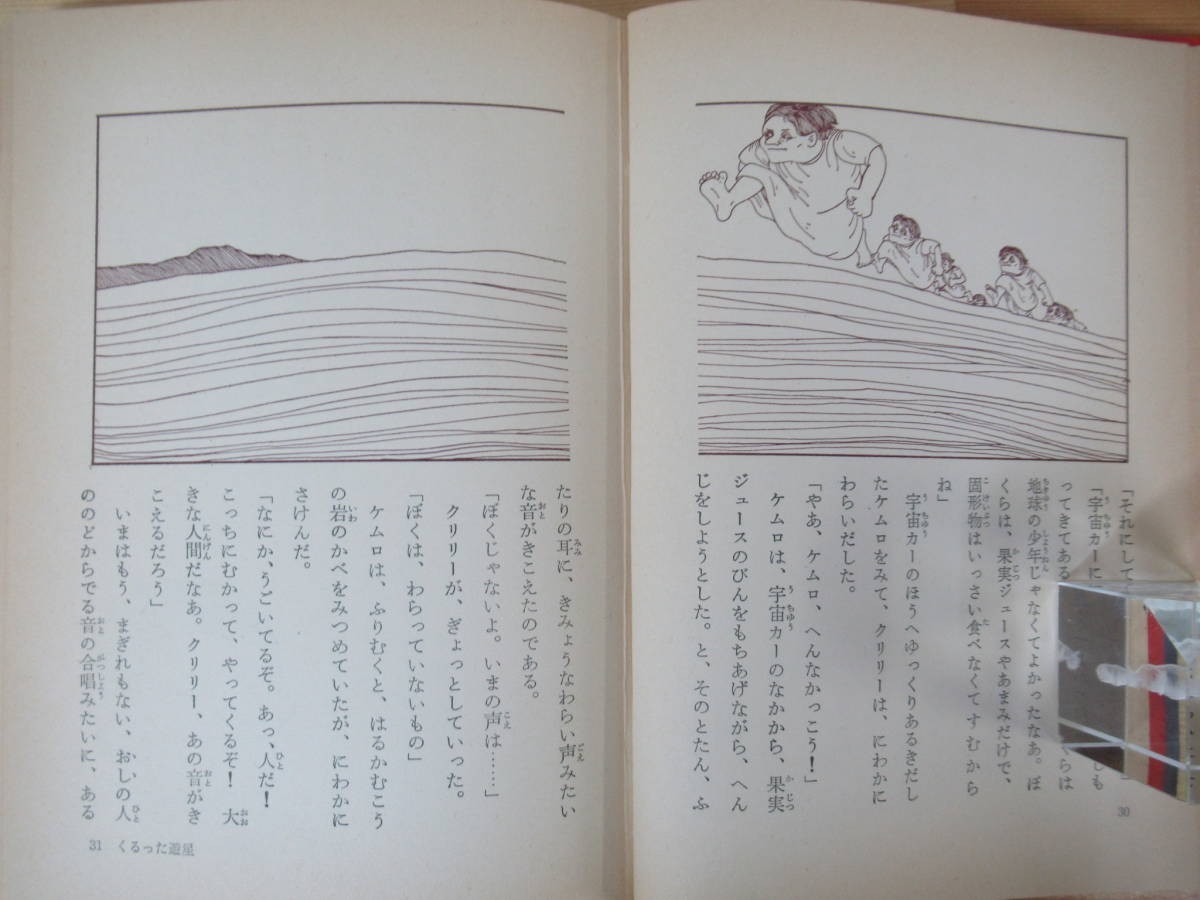 「それにして
「宇宙カーに しも
ってきてある らは
地球の少年じゃなくてよかったなあ。ぼ
くらは、果実ジュースやあまみだけで、
固形物はいっさい食べなくてすむから
ね」
宇宙カーのほうへゆっくりあるきだし
たケムロをみて、クリリーは、にわかに
わらいだした。
「やあ、ケムロ、へんなかっこう！」
ケムロは、宇宙カーのなかから、果実
ジュースのびんをもちあげながら、へん
じをしようとした。と、そのとたん、ふ
30
たりの耳に、きみょうなわらい声みたい
な音がきこえたのである。
「ぼくじゃないよ。いまの声は……」
クリリーが、ぎょっとしていった。
「ぼくは、わらっていないもの」
ケムロは、ふりむくと、はるかむこう
の岩のかべをみつめていたが、にわかに
さけんだ。
「なにか、うごいてるぞ。あっ、人だ！
こっちにむかって、やってくるぞ！　大
きな人間だなあ。クリリー、あの音がき
こえるだろう」
いまはもう、まぎれもない、おしの人
ののどからでる音の合唱みたいに、ある
31 くるった遊星